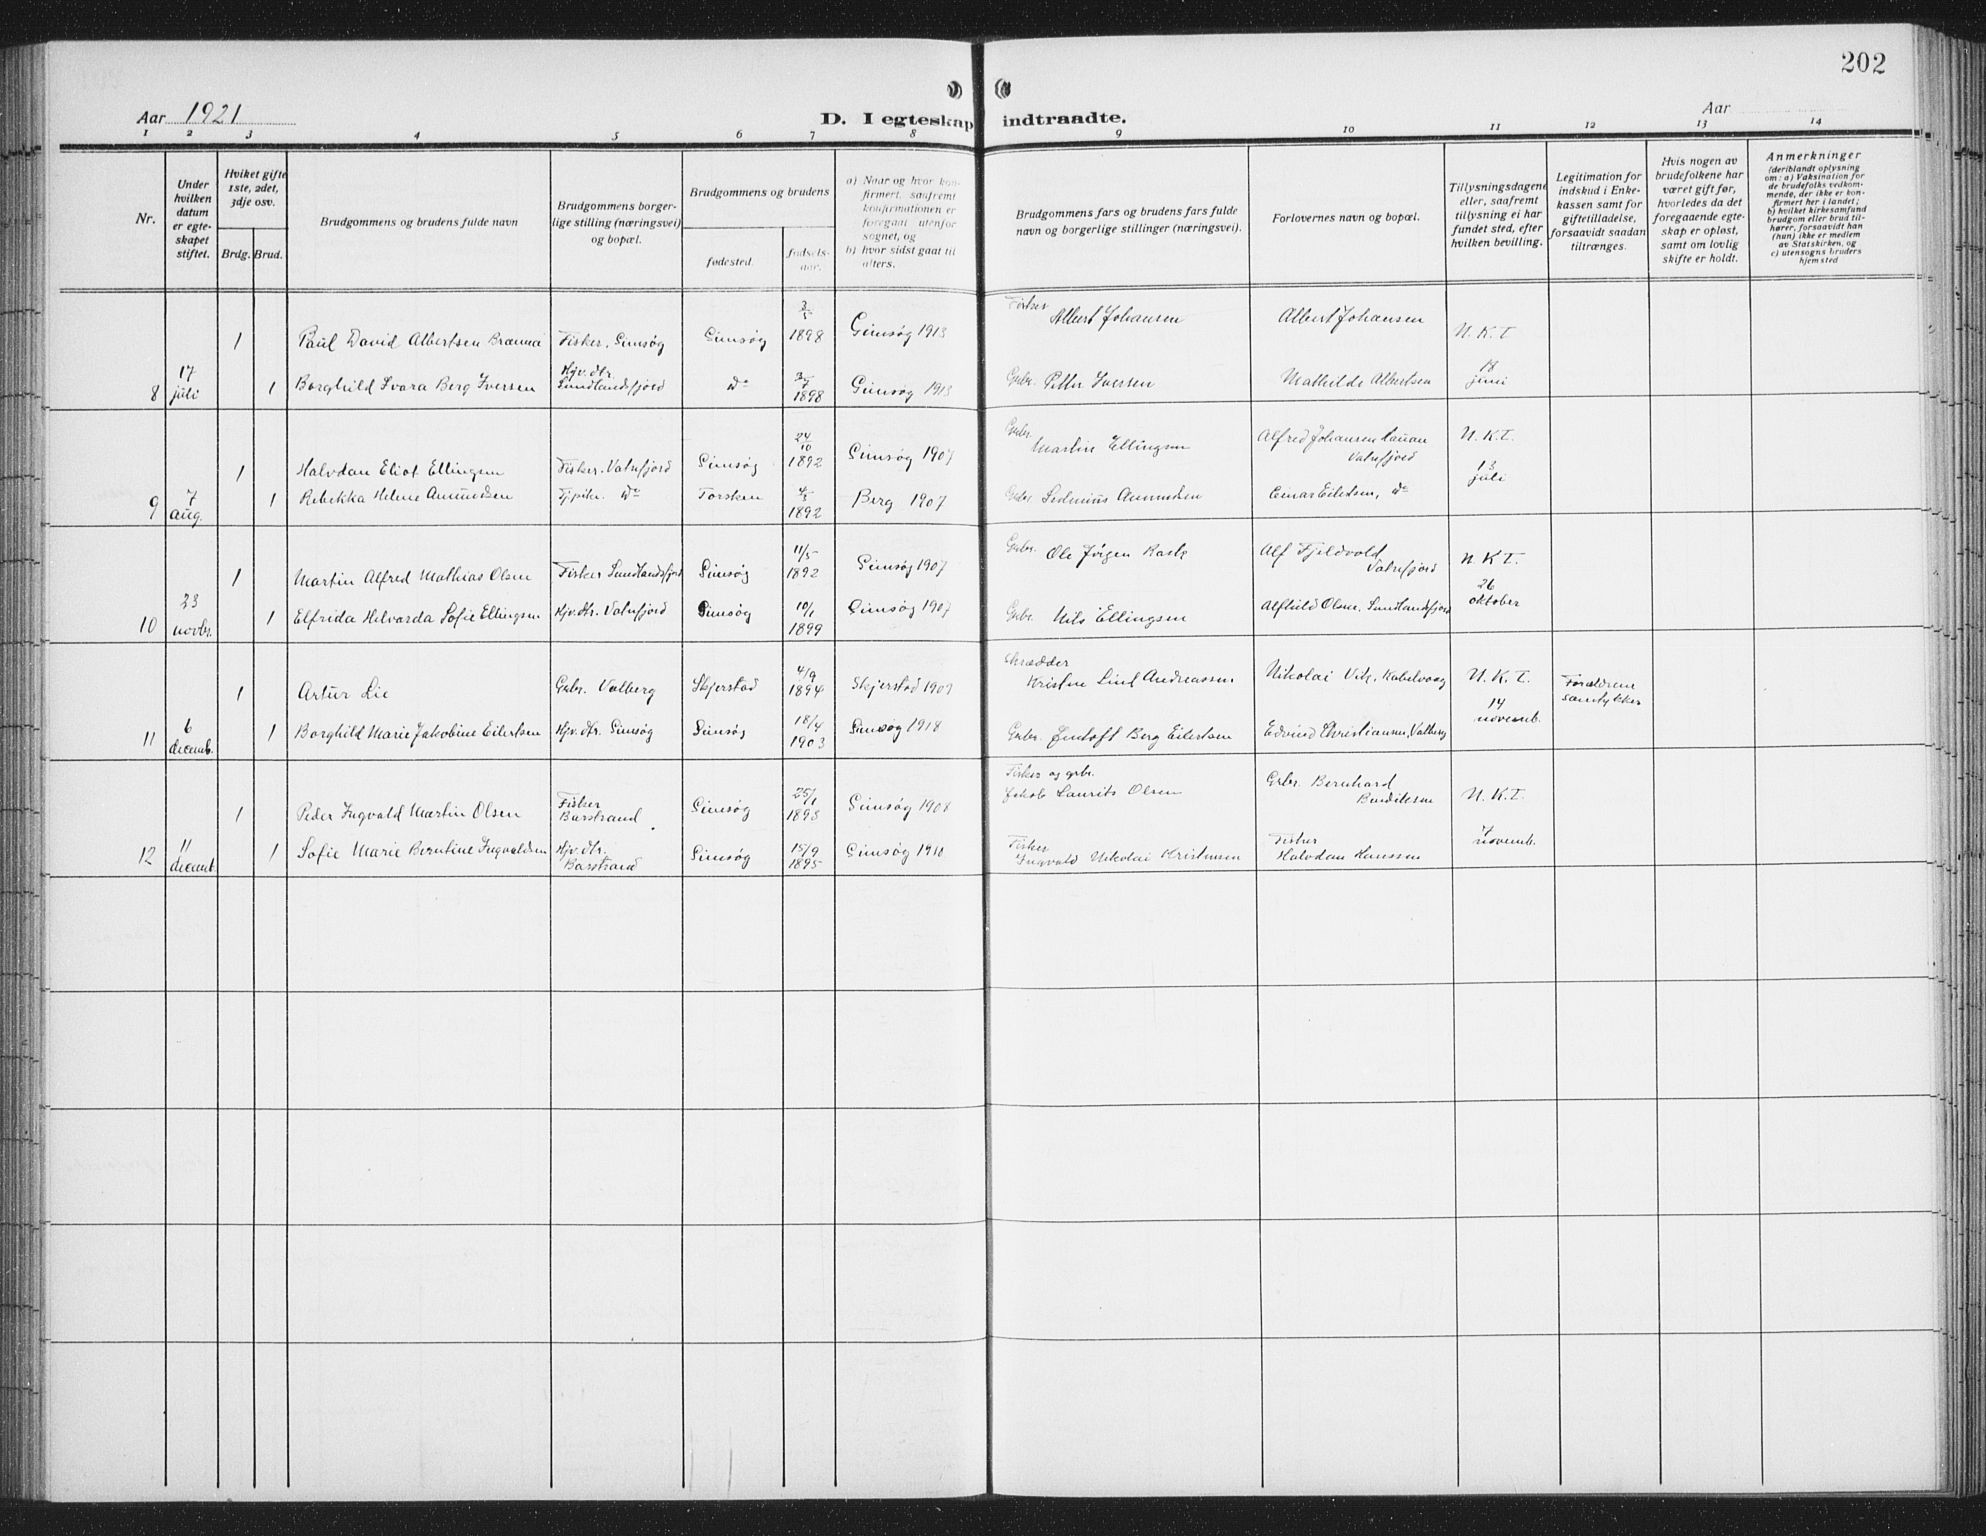 202
Aar 1921
D. I egteskap indtraadte.
Aar
1 2 3 4 5 6 7 8 9 10 11 12 13 14
Nr.
Under hvilken datum er egteskapet stiftet.
Hvilket gifte 1ste, 2det, 3dje osv.
Brdg. Brud.
Brudgommens og brudens fulde navn
Brudgommens borgerlige stilling (næringsvei) og bopæl.
Brudgommens og brudens
fødested.
fødselsaar.
a) Naar og hvor konfirmert, saafremt konfirmationen er foregaat utenfor sognet, og
b) hvor sidst gaat til alters.
Brudgommens fars og brudens fars fulde navn og borgerlige stillinger (næringsvei).
Forlovernes navn og bopæl.
Tillysningsdagene eller, saafremt tillysning ei har fundet sted, efter hvilken bevilling.
Legitimation for indskud i Enkekassen samt for giftetilladelse, forsaavidt saadan tiltrænges.
Hvis nogen av brudefolkene har været gift før, hvorledes da det foregaaende egteskap er opløst, samt om lovlig skifte er holdt.
Anmerkninger (deriblandt oplysning om: a) Vaksination for de brudefolks vedkommende, der ikke er konfirmert her i landet; b) hvilket kirkesamfund brudgom eller brud tilhører, forsaavidt han (hun) ikke er medlem av Statskirken, og c) utensogns bruders hjemsted
1 Paul David Albertsen Fisker, Gimsøg Gimsøg 3/5 1898 Gimsøg 1913 Fisker Albert Johansen Albert Johansen N. K. T.
8 17 juli 1 Borghild Svara Berg Iversen Hjv. dtr. Sundlandsfjord do 1898 Gimsøg 1913 Grbr. Petter Iversen Mathilde Albertsen 18 juni
1 Halvdan Eliot Ellingsen Fisker. Vatnfjord Gimsøg 24/10 1892 Gimsøg 1907 Grbr. Martin Ellingsen Alfred Johansen Vatnfjord N. K. T.
9 7 aug. 1 Rebekka Helene Amundsen do Torsken 1892 Berg 1907 Grbr. Sedenius Amundsen Einar Eilertsen, do 13 juli
1 Martin Alfred Mathias Olsen Fisker Sundlandsfjord Gimsøg 11/5 1892 Gimsøg 1907 Grbr. Ole Jörgen Alf Fjeldvold Vatnfjord N. K. T.
10 23 novbr. 1 Elfrida Helvarda Sofie Ellingsen Hjv. dtr. Vatnfjord Gimsøg 10/1 1899 Gimsøg 1907 Grbr. Nils Ellingsen Alfhild Olsen, Sundlandsfjord 26 oktober
1 Artur Lie Grbr. Valberg Skjerstad 4/9 1894 Skjerstad 1909 Skrædder Kristen Lind Andreassen Nikolai Vik, Kabelvaag N. K. T. Forældrene samtykker
11 6 decemb. 1 Borghild Marie Jakobine Eilertsen Hjv. dtr. Gimsøg Gimsøg 18/4 1903 Gimsøg 1918 Grbr. Jentoft Berg Eilertsen Edvind Christiansen, Valberg 14 novemb.
1 Peder Ingvald Martin Olsen Fisker Barstrand Gimsøg 25/1 1893 Gimsøg 1908 Fisker og grbr. Jakob Laurits Olsen Grbr. Bernhard Benditsen N. K. T.
12 11 decemb. 1 Sofie Marie Berntine Ingvaldsen Hjv. dtr. Barstrand Gimsøg 15/9 1895 Gimsøg 1910 Fisker Ingvald Nikolai Kristensen Fisker Halvdan Hanssen 7 novemb.